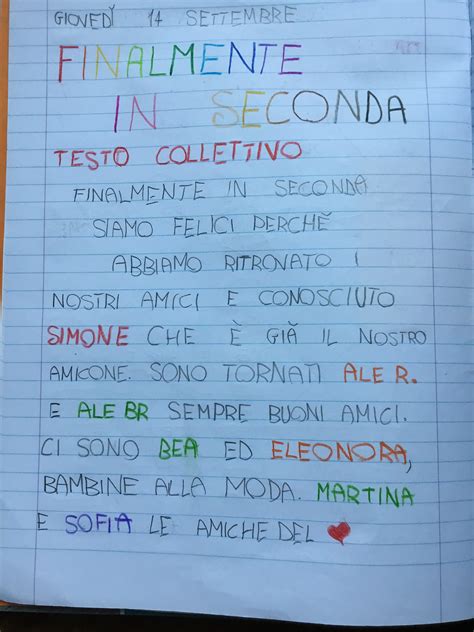 GIOVEDÌ 14 SETTEMBRE
FINALMENTE
IN SECONDA
TESTO COLLETTIVO
FINALMENTE IN SECONDA
SIAMO FELICI PERCHÈ
ABBIAMO RITROVATO I
NOSTRI AMICI E CONOSCIUTO
SIMONE CHE È GIÀ IL NOSTRO
AMICONE. SONO TORNATI ALE R.
E ALE BR SEMPRE BUONI AMICI.
CI SONO BEA ED ELEONORA,
BAMBINE ALLA MODA. MARTINA
E SOFIA LE AMICHE DEL ❤